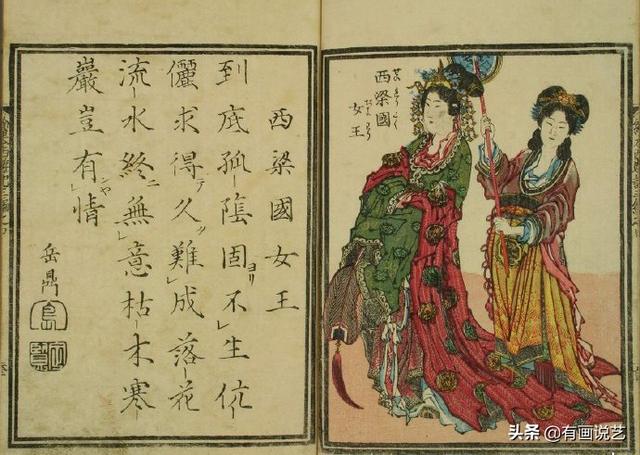 西梁國
女王
西梁國女王
到底孤陰固不生伉
儷求得久難成落花
流水終無意枯木寒
巖豈有情
岳鼎
头条 @有画说艺